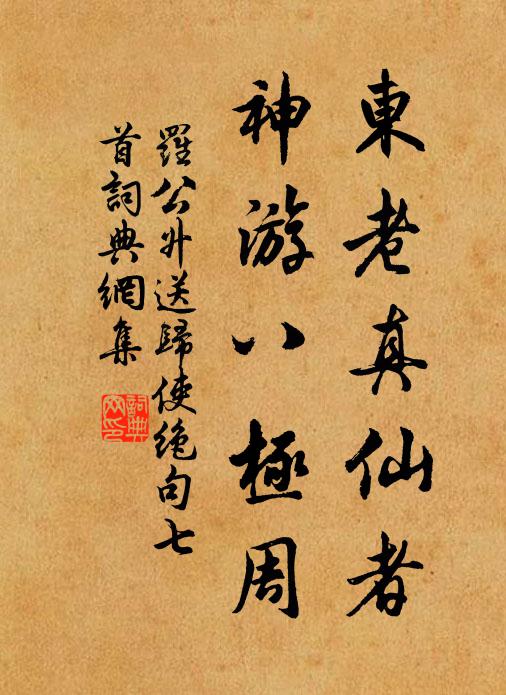 東老真仙者
神游八極周
羅公升送歸使絶句七
首詞典網集
詞典
网印